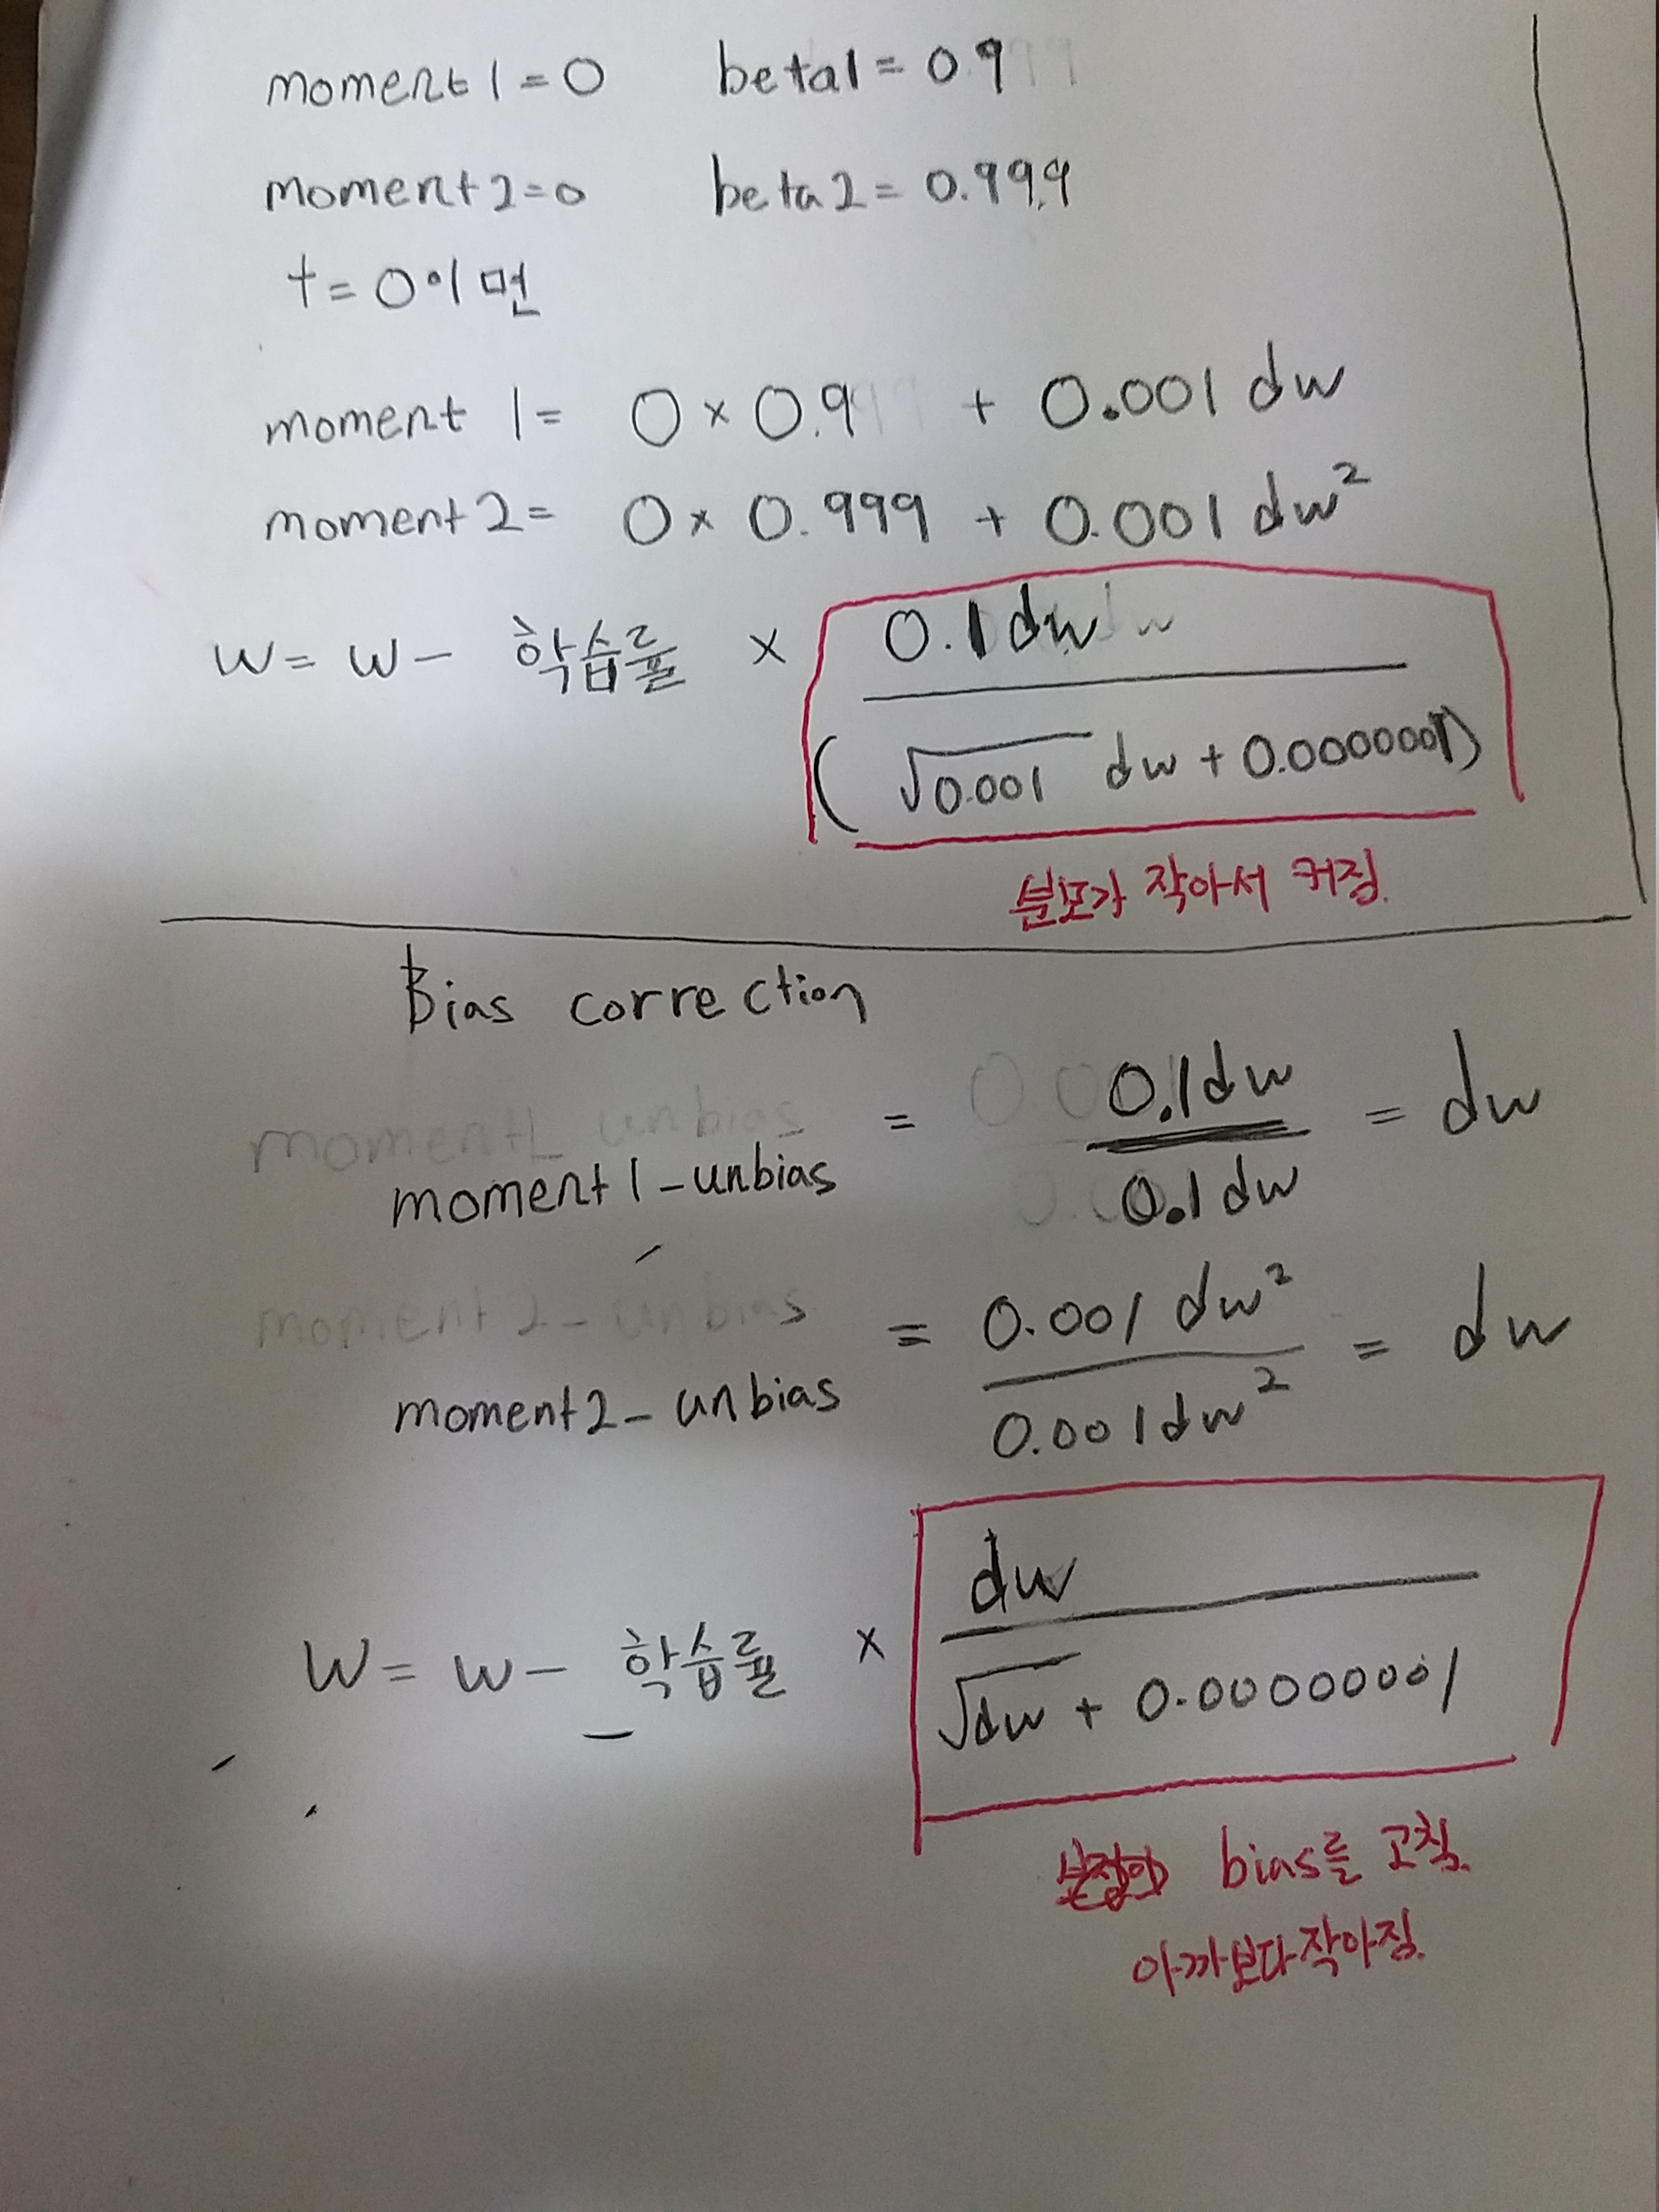 moment 1 = 0 beta1 = 0.9
moment 2 = 0 beta 2 = 0.999
t = 0이면
moment 1 = 0 × 0.9 + 0.001 dw
moment 2 = 0 × 0.999 + 0.001 dw²
w = w - 학습률 × 0.1 dw
( √0.001 dw + 0.0000001)
분모가 작아서 커짐.
Bias correction
moment1-unbias = 0.1dw / 0.1dw = dw
moment2-unbias = 0.001 dw² / 0.001dw² = dw
dw
W = w - 학습률 ×
√dw + 0.00000001
bias를 고침.
아까보다 작아짐.